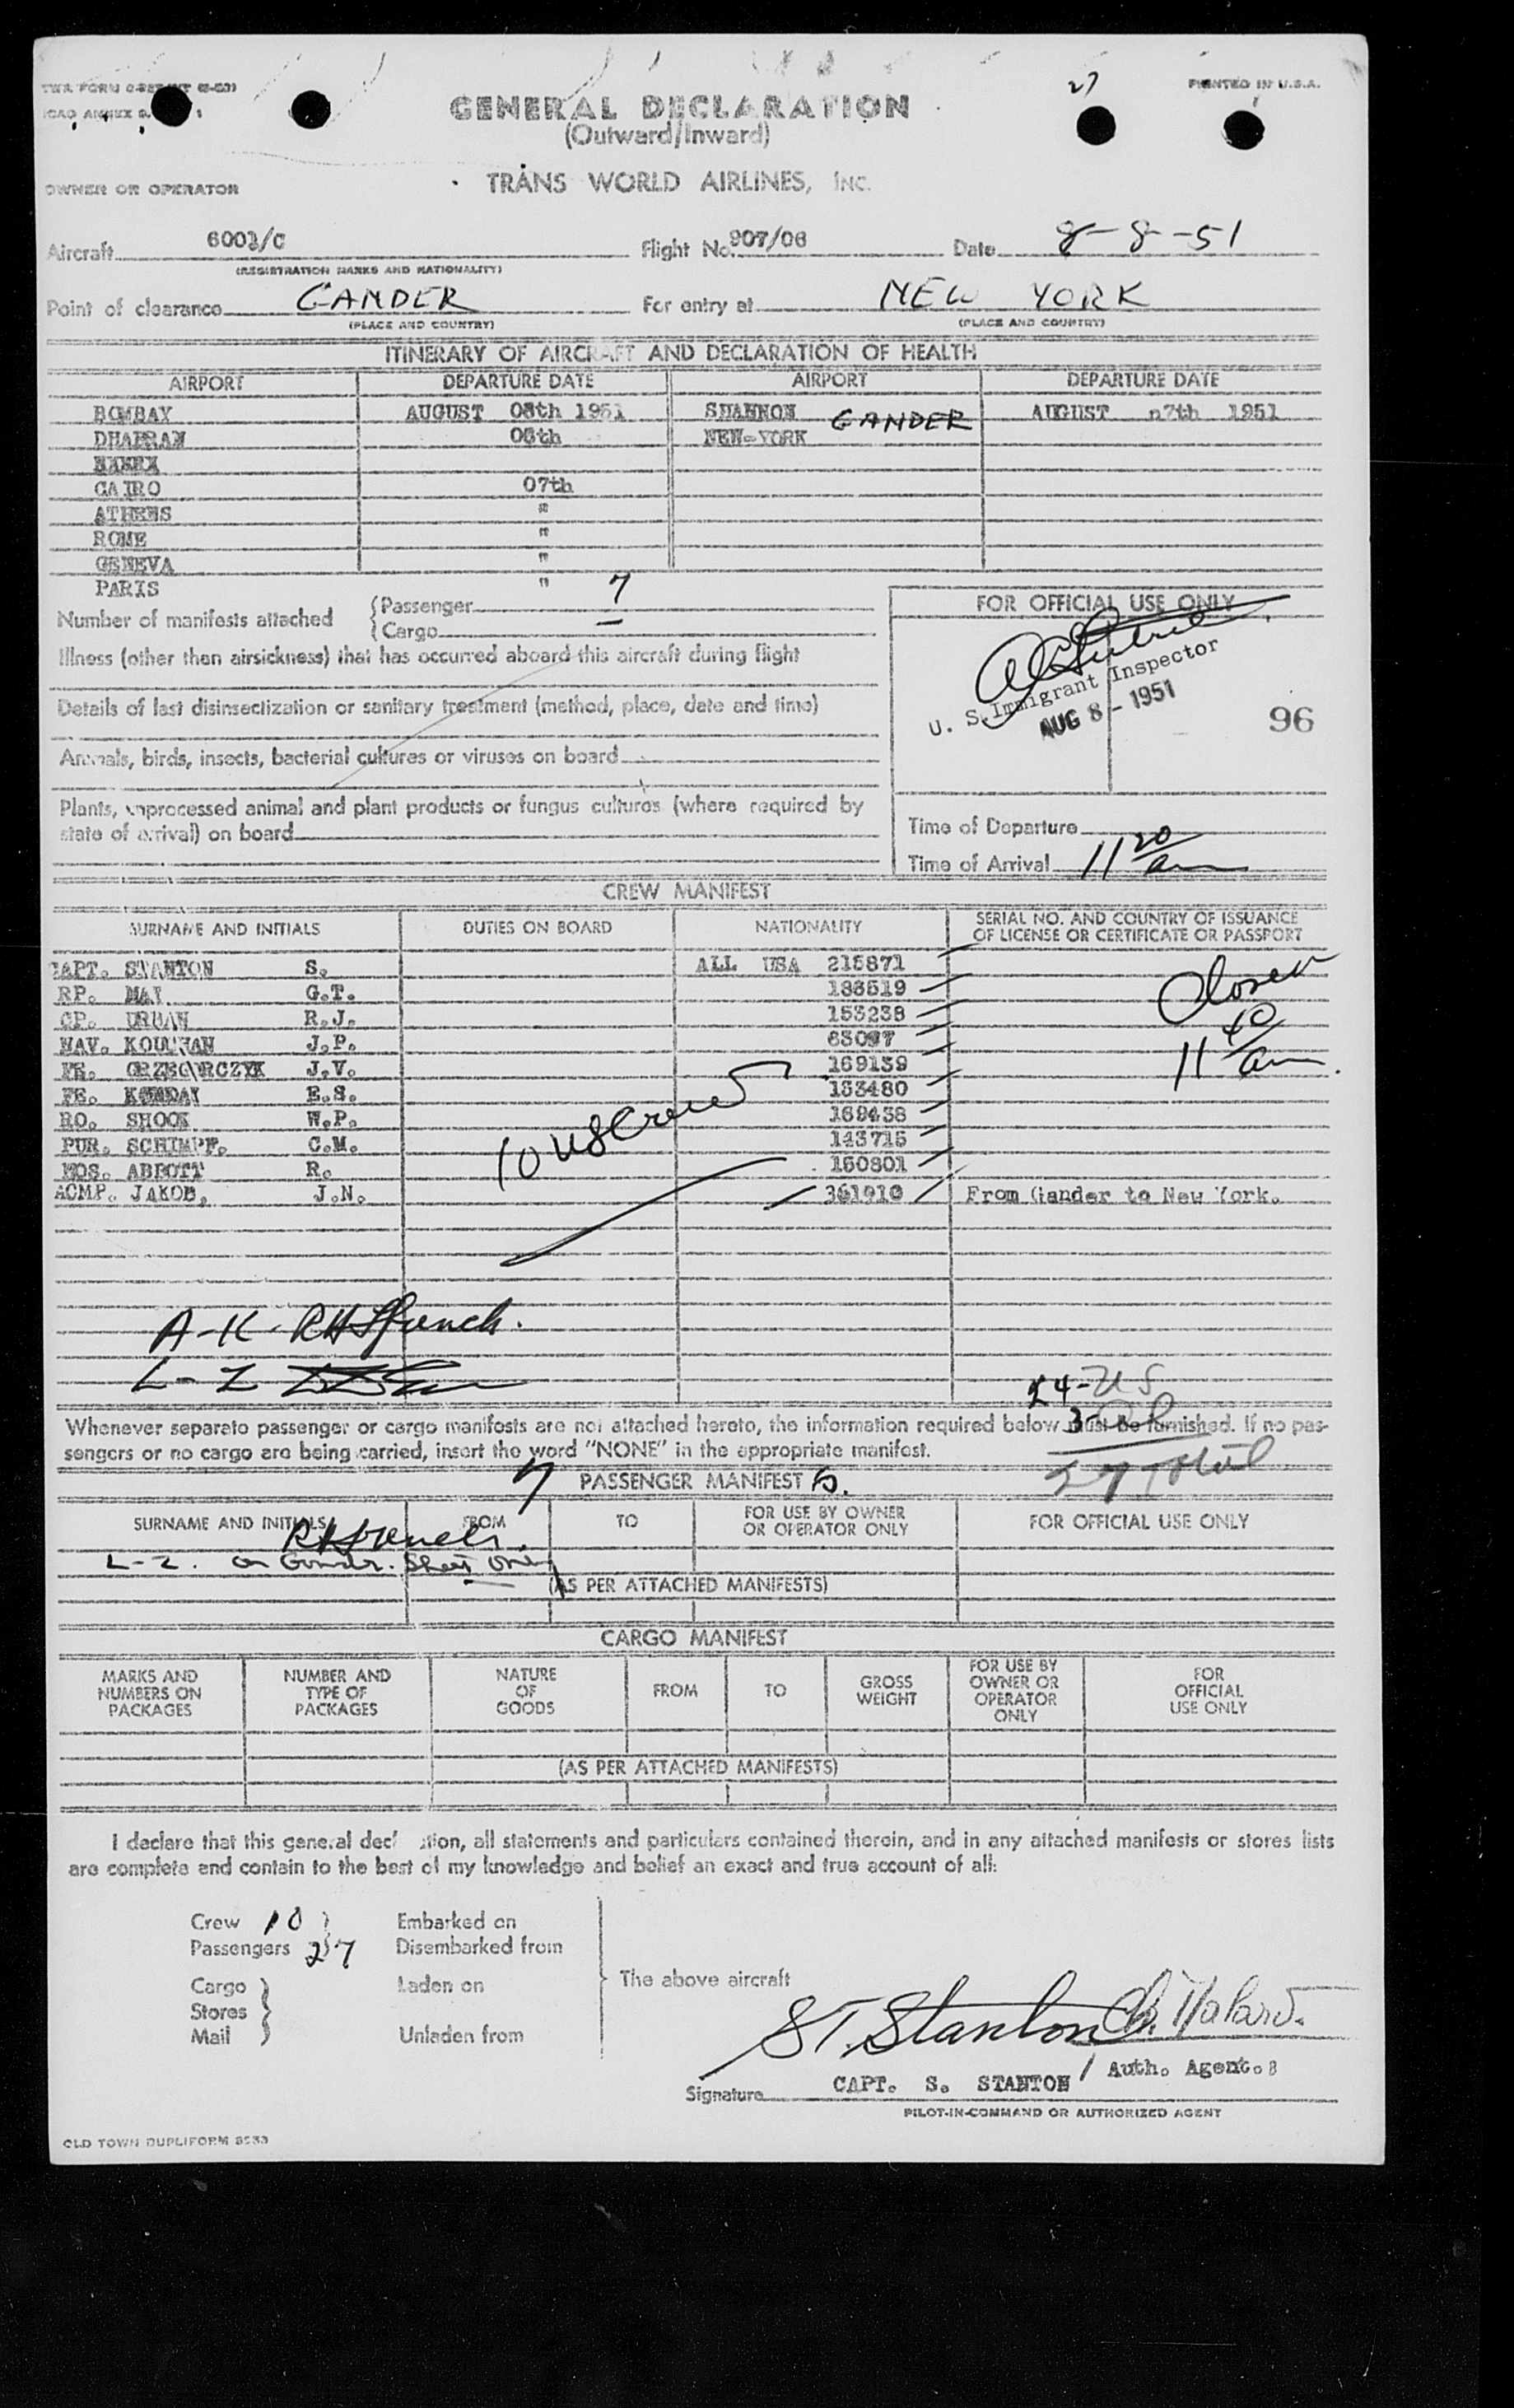 27
PRINTED IN U.S.A.
GENERAL DECLARATION
(Outward/Inward)
OWNER OR OPERATOR TRANS WORLD AIRLINES, INC.
Aircraft 6003/C Flight No. 907/06 Date 8-8-51
(REGISTRATION MARKS AND NATIONALITY)
Point of clearance GANDER For entry at NEW YORK
(PLACE AND COUNTRY) (PLACE AND COUNTRY)
ITINERARY OF AIRCRAFT AND DECLARATION OF HEALTH
AIRPORT DEPARTURE DATE AIRPORT DEPARTURE DATE
BOMBAY AUGUST 1951 SHANNON GANDER AUGUST 07th 1951
DHAHRAN 06th NEW-YORK
CAIRO 07th
ATHENS "
ROME "
GENEVA "
PARIS "
Number of manifests attached {Passenger 7
{Cargo —
FOR OFFICIAL USE ONLY
Illness (other than airsickness) that has occurred aboard this aircraft during flight
U. S. Immigrant Inspector
AUG 8 - 1951
96
Details of last disinsectization or sanitary treatment (method, place, date and time)
Animals, birds, insects, bacterial cultures or viruses on board
Plants, unprocessed animal and plant products or fungus cultures (where required by
state of arrival) on board
Time of Departure
Time of Arrival 11 20 am
CREW MANIFEST
SURNAME AND INITIALS DUTIES ON BOARD NATIONALITY SERIAL NO. AND COUNTRY OF ISSUANCE
OF LICENSE OR CERTIFICATE OR PASSPORT
CAPT. STANTON S. ALL USA 215871
RP. MAY G.T. 186519
CP. URBAN R.J. 153238
NAV. J.P. 63097
FE. GRZEGORCZYK J.V. 169139
FE. E.S. 133480
RO. SHOOK W.P. 169438
PUR. SCHIMPF. C.M. 143715
HOS. ABBOTT R. 150801
ACMP. JAKOB, J.N. 361910 From Gander to New York.
Closed
11 40 am.
10 US Crew
A-K. RH French.
L-Z
24-US
Whenever separate passenger or cargo manifests are not attached hereto, the information required below must be furnished. If no pas-
sengers or no cargo are being carried, insert the word "NONE" in the appropriate manifest.
27 Total
7 PASSENGER MANIFEST S.
SURNAME AND INITIALS FROM TO FOR USE BY OWNER
OR OPERATOR ONLY FOR OFFICIAL USE ONLY
RH French.
L-Z. on Gander. Sheet only
(AS PER ATTACHED MANIFESTS)
CARGO MANIFEST
MARKS AND
NUMBERS ON
PACKAGES
NUMBER AND
TYPE OF
PACKAGES
NATURE
OF
GOODS
FROM
TO
GROSS
WEIGHT
FOR USE BY
OWNER OR
OPERATOR
ONLY
FOR
OFFICIAL
USE ONLY
(AS PER ATTACHED MANIFESTS)
I declare that this general declaration, all statements and particulars contained therein, and in any attached manifests or stores lists
are complete and contain to the best of my knowledge and belief an exact and true account of all:
Crew 10 Embarked on
Passengers 27 Disembarked from
Cargo } Laden on
Stores }
Mail } Unladen from
The above aircraft
S T. Stanton
CAPT. S. STANTON / Auth. Agent.
Signature
PILOT-IN-COMMAND OR AUTHORIZED AGENT
OLD TOWN DUPLIFORM